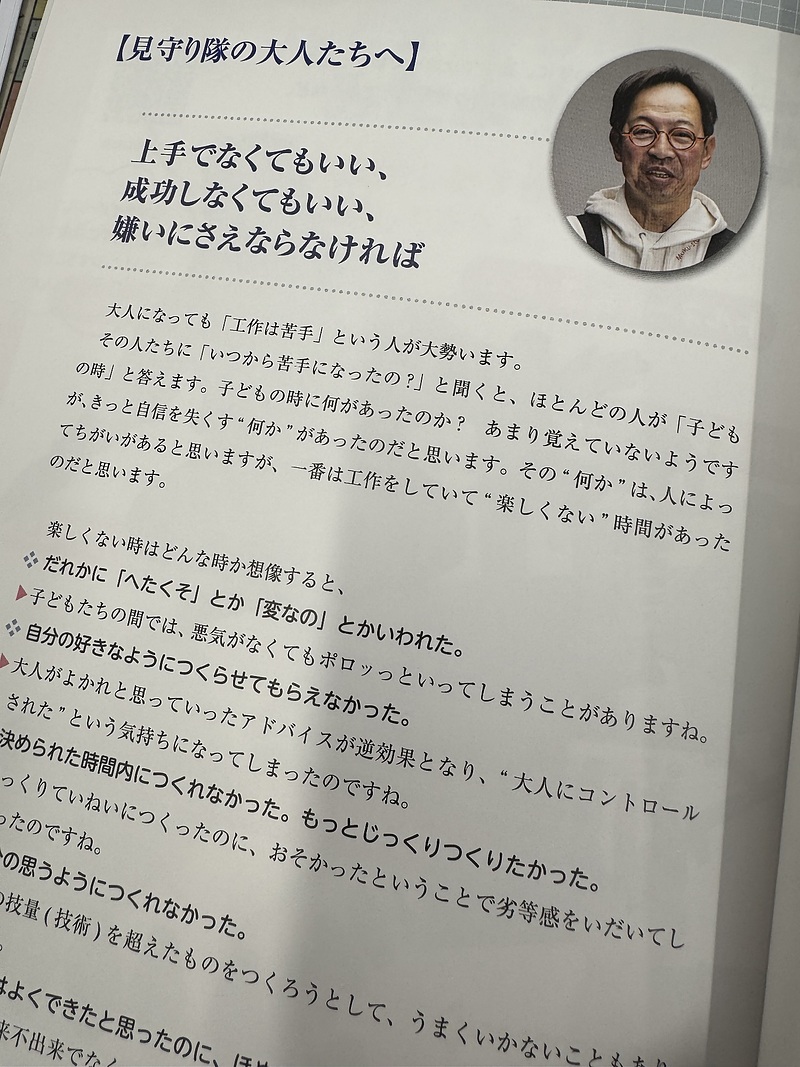 【見守り隊の大人たちへ】
上手でなくてもいい、
成功しなくてもいい、
嫌いにさえならなければ
大人になっても「工作は苦手」という人が大勢います。
その人たちに「いつから苦手になったの?」と聞くと、ほとんどの人が「子ども
の時」と答えます。子どもの時に何があったのか? あまり覚えていないようです
が、きっと自信を失くす“何か”があったのだと思います。その“何か”は、人によっ
てちがいがあると思いますが、一番は工作をしていて“楽しくない”時間があった
のだと思います。
楽しくない時はどんな時か想像すると、
だれかに「へたくそ」とか「変なの」とかいわれた。
子どもたちの間では、悪気がなくてもポロッっといってしまうことがありますね。
自分の好きなようにつくらせてもらえなかった。
大人がよかれと思っていったアドバイスが逆効果となり、“大人にコントロール
された”という気持ちになってしまったのですね。
決められた時間内につくれなかった。もっとじっくりつくりたかった。
っくりていねいにつくったのに、おそかったということで劣等感をいだいてし
ったのですね。
の思うようにつくれなかった。
の技量(技術)を超えたものをつくろうとして、うまくいかないこともあり
。
はよくできたと思ったのに、ほめ
来不出来でなく